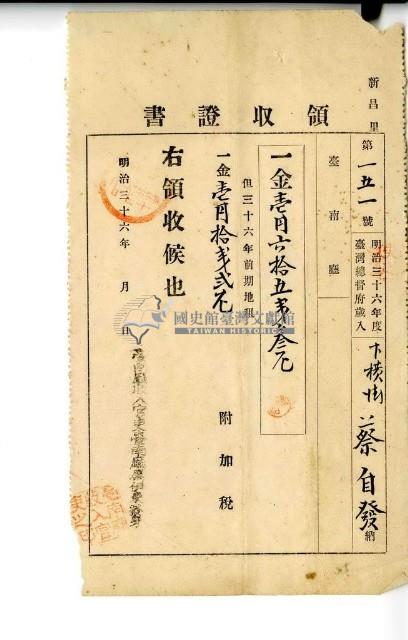 新昌里
領收證書
第一五一號
明治三十六年度
臺灣總督府歲入
下橫街 蔡自發 納
臺南廳
一金壱円六拾五銭叁厘
但三十六年前期地租
一金壱円拾銭弐厘 附加税
右領收候也
明治三十六年 月 日
國史館臺灣文獻館
TAIWAN HISTORICA